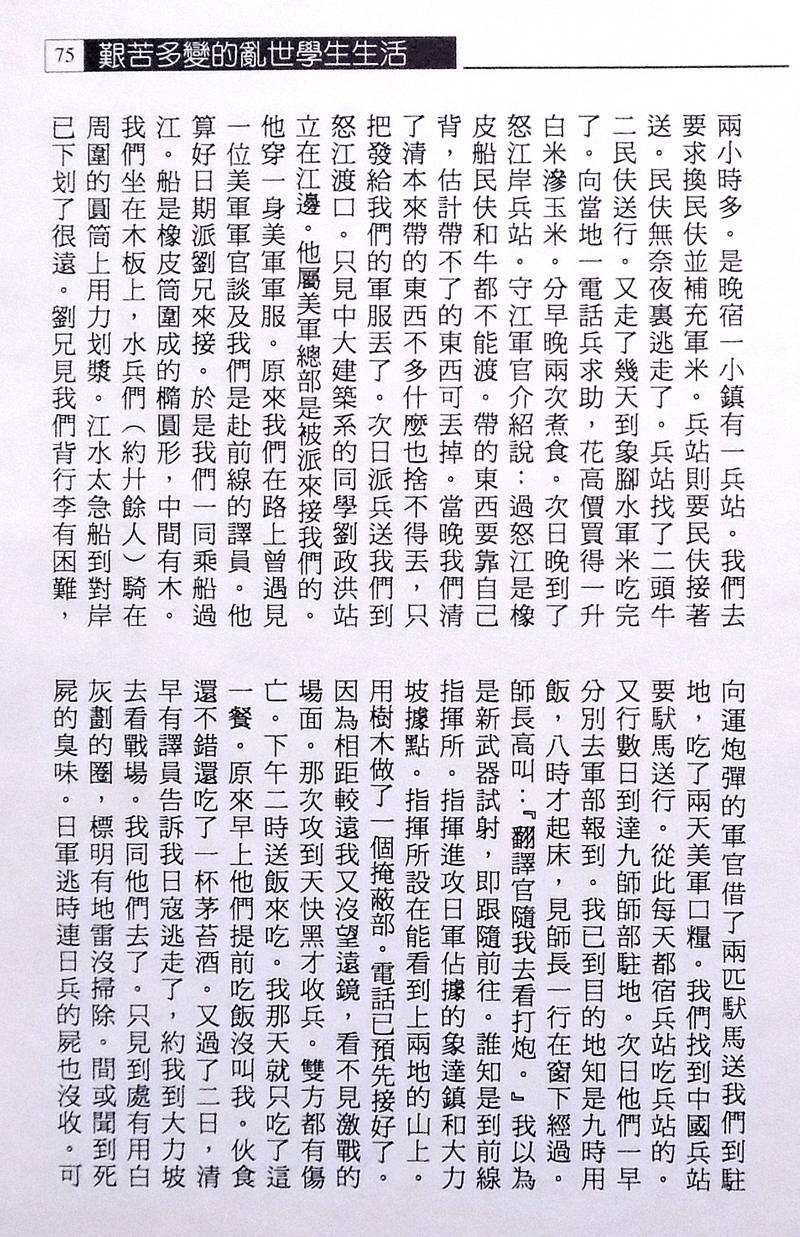 75 艱苦多變的亂世學生生活
兩小時多。是晚宿一小鎮有一兵站。我們去
要求換民伕並補充軍米。兵站則要民伕接著
送。民伕無奈夜裏逃走了。兵站找了二頭牛
二民伕送行。又走了幾天到象腳水軍米吃完
了。向當地一電話兵求助，花高價買得一升
白米滲玉米。分早晚兩次煮食。次日晚到了
怒江岸兵站。守江軍官介紹說：過怒江是橡
皮船民伕和牛都不能渡。帶的東西要靠自己
背，估計帶不了的東西可丟掉。當晚我們清
了清本來帶的東西不多什麼也捨不得丟，只
把發給我們的軍服丟了。次日派兵送我們到
怒江渡口。只見中大建築系的同學劉政洪站
立在江邊。他屬美軍總部是被派來接我們的。
他穿一身美軍軍服。原來我們在路上曾遇見
一位美軍軍官談及我們是赴前線的譯員。他
算好日期派劉兄來接。於是我們一同乘船過
江。船是橡皮筒圍成的橢圓形，中間有木。
我們坐在木板上，水兵們（約廾餘人）騎在
周圍的圓筒上用力划槳。江水太急船到對岸
已下划了很遠。劉兄見我們背行李有困難，
向運炮彈的軍官借了兩匹馱馬送我們到駐
地，吃了兩天美軍口糧。我們找到中國兵站
要馱馬送行。從此每天都宿兵站吃兵站的。
又行數日到達九師師部駐地。次日他們一早
分別去軍部報到。我已到目的地知是九時用
飯，八時才起床，見師長一行在窗下經過。
師長高叫：『翻譯官隨我去看打炮。』我以為
是新武器試射，即跟隨前往。誰知是到前線
指揮所。指揮進攻日軍佔據的象達鎮和大力
坡據點。指揮所設在能看到上兩地的山上。
用樹木做了一個掩蔽部。電話已預先接好了。
因為相距較遠我又沒望遠鏡，看不見激戰的
場面。那次攻到天快黑才收兵。雙方都有傷
亡。下午二時送飯來吃。我那天就只吃了這
一餐。原來早上他們提前吃飯沒叫我。伙食
還不錯還吃了一杯茅苔酒。又過了二日，清
早有譯員告訴我日寇逃走了，約我到大力坡
去看戰場。我同他們去了。只見到處有用白
灰劃的圈，標明有地雷沒掃除。間或聞到死
屍的臭味。日軍逃時連日兵的屍也沒收。可